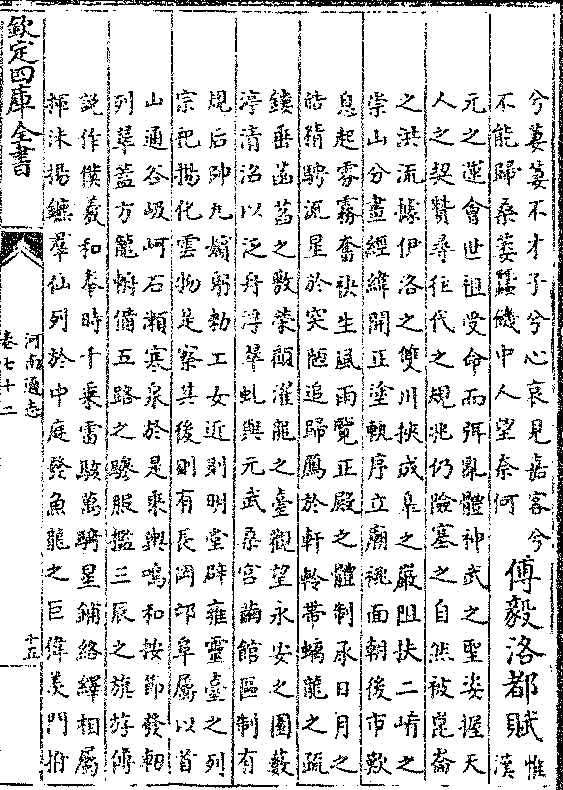 兮萋萋不才子兮心哀見嘉客兮
不能歸桑萋蠶饑中人望奈何
傅毅洛都賦
惟
漢
元之運會世祖受命而弭亂體神武之聖姿握天
人之契贊尋往代之規兆仍險塞之自然被崑崙
之洪流據伊洛之雙川挾成皋之嚴阻扶二崤之
崇山分畫經緯開正塗軌序立廟祧面朝後市歎
息起雰霧奮袂生風雨覽正殿之體制承日月之
皓精騁流星於突陋追歸鴈於軒軨帶螭龍之疏
鏤垂菡萏之敷榮顧濯龍之臺觀望永安之園籔
渟清沼以泛舟浮翠虬與元武桑宮繭館區制有
規后帥九嬪躬勅工女近則明堂辟雍靈臺之列
宗祀揚化雲物是察其後則有長岡邙阜屬以首
山通谷岋岢石瀨寒泉於是乘輿鳴和按節發軔
列翠蓋方龍輈備五路之驂服檻三辰之旗斿傅
説作僕羲和奉時千乘雷駭萬騎星鋪絡繹相屬
揮沫揚鑣羣仙列於中庭發魚龍之巨偉羨門拊
欽定四庫全書
河南通志
卷七十二
十五